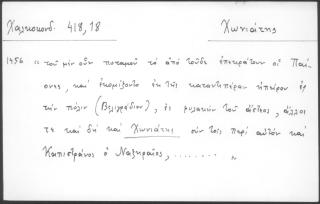 Χαλκοκονδ. 418,18 Χωνιάτης
1456 "τοῦ μὲν οὖν ποταμοῦ τὸ ἀπὸ τοῦδε ἐπεκράτουν οἱ Παί-
ονες, καὶ ἐκομίζοντο ἐκ τῆς καταντιπέραν ἠπείρου ἐς
τὴν πόλιν (Βελιγράδιον), ἐς φυλακὴν τοῦ ἄστεος, ἄλλοι
τε καὶ δὴ καὶ Χωνιάτης σὺν τοῖς περὶ αὐτὸν καὶ
Καπιστράνος ὁ Ναζηραῖος, ........ "